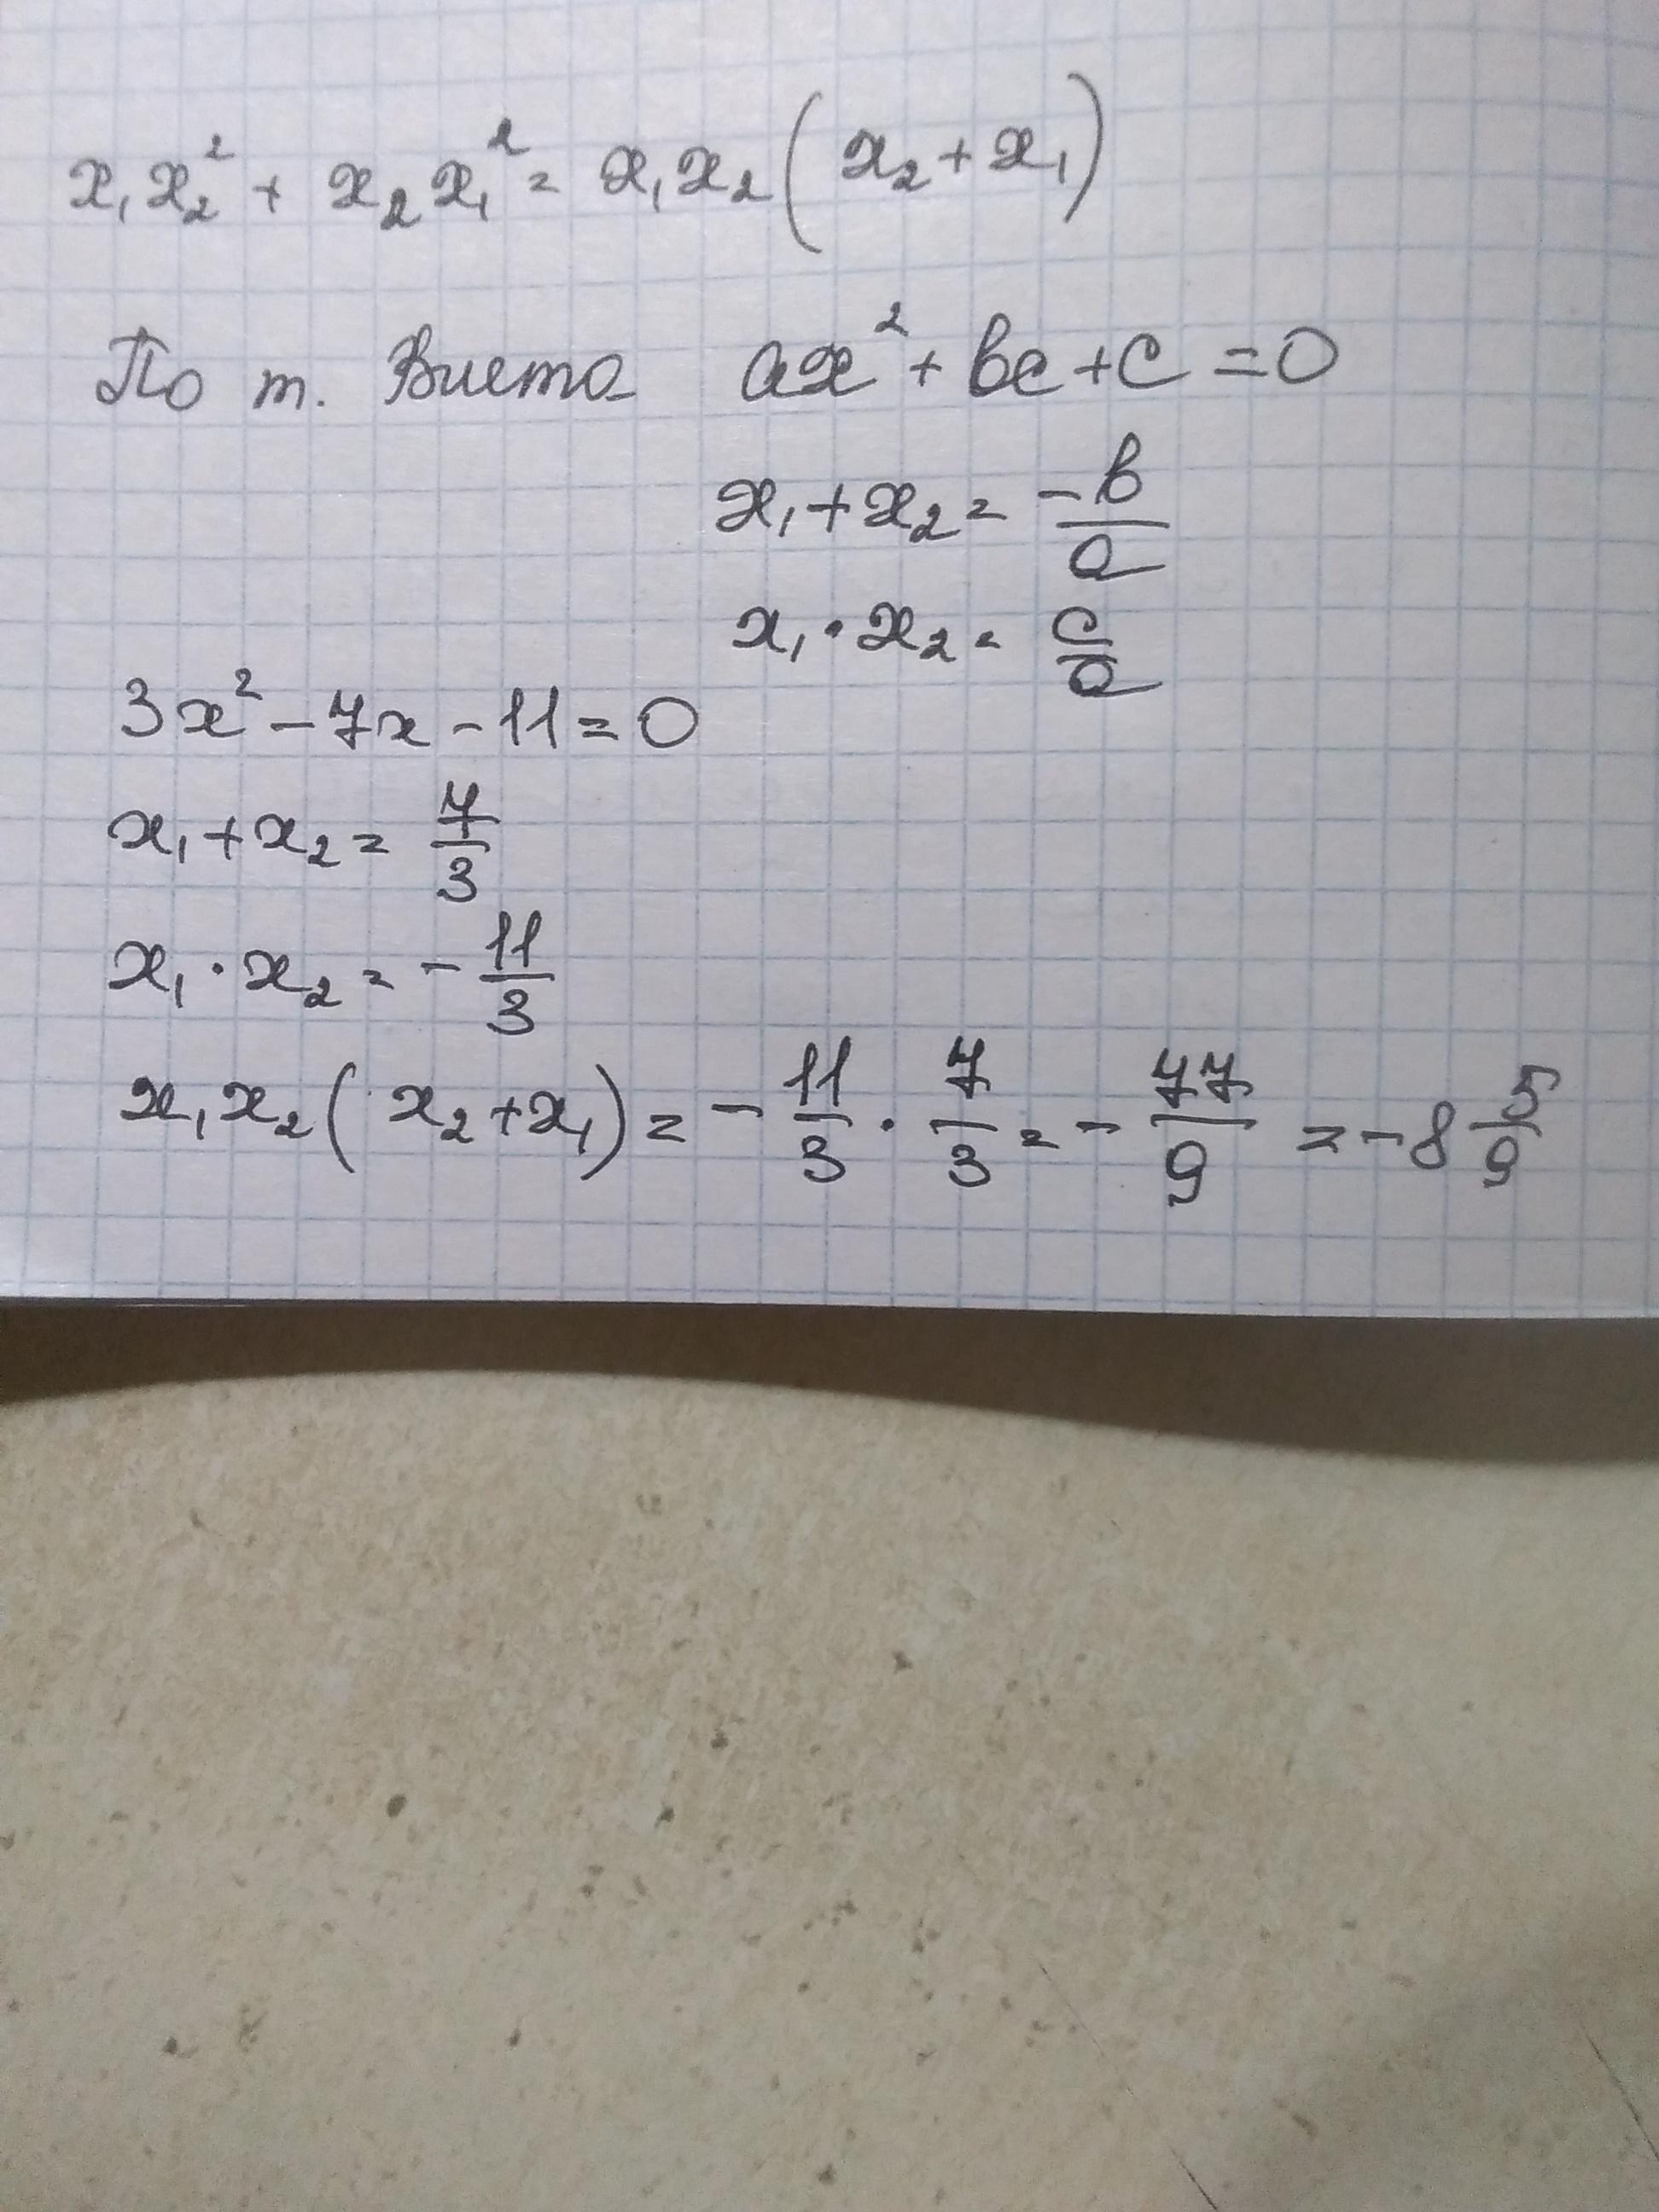 x₁x₂² + x₂x₁² = x₁x₂(x₂+x₁)
По т. Виета ax² + вc + c = 0
x₁ + x₂ = -в/a
x₁ · x₂ = c/a
3x² - 7x - 11 = 0
x₁ + x₂ = 7/3
x₁ · x₂ = - 11/3
x₁x₂(x₂+x₁) = - 11/3 · 7/3 = - 77/9 = -8 5/9